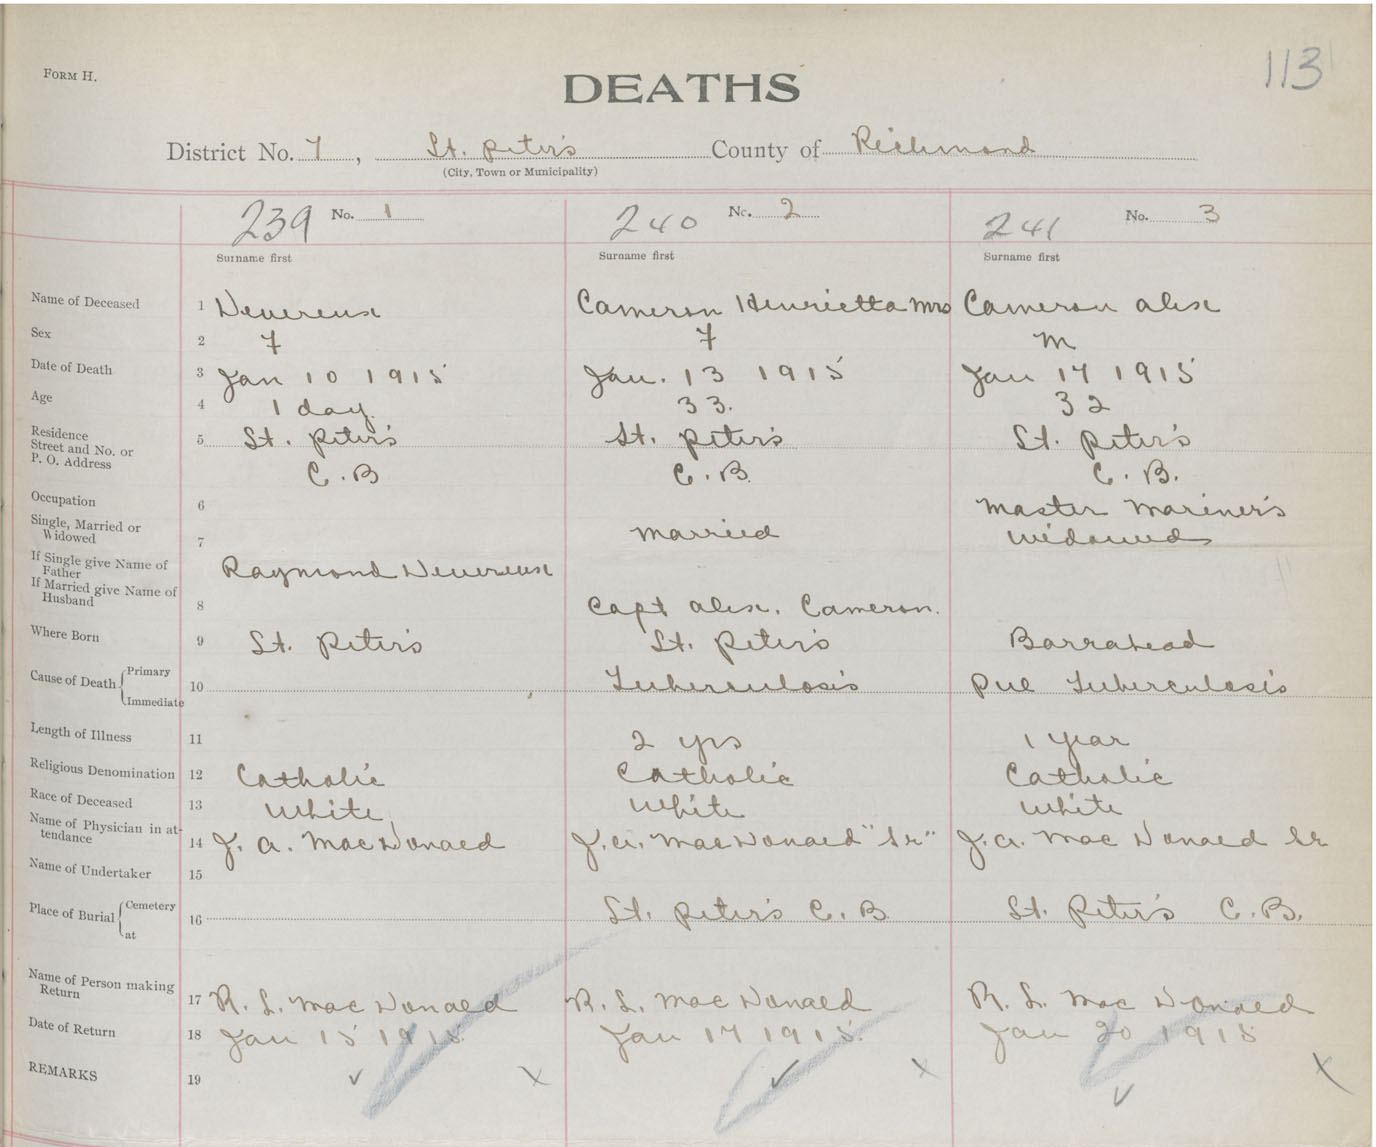 FORM H.
113
DEATHS
District No. 7, St. Peter's County of Richmond
(City, Town or Municipality)
239 No. 1 240 No. 2 241 No. 3
Surname first Surname first Surname first
Name of Deceased 1 Devereux Cameron Henrietta Mrs Cameron Alex
Sex 2 F F M
Date of Death 3 Jan 10 1915 Jan. 13 1915 Jan 17 1915
Age 4 1 day. 33. 32
Residence
Street and No. or 5 St. Peter's St. Peter's St. Peter's
P. O. Address C. B C. B. C. B.
Occupation 6 Master Mariner's
Single, Married or
Widowed 7 Married Widowed
If Single give Name of
Father Raymond Devereux
If Married give Name of
Husband 8 Capt Alex. Cameron.
Where Born 9 St. Peter's St. Peter's Barrahead
Cause of Death Primary
10 Tuberculosis Pul Tuberculosis
Immediate
Length of Illness 11 2 yrs 1 year
Religious Denomination 12 Catholic Catholic Catholic
Race of Deceased 13 White White White
Name of Physician in at-
tendance 14 J. A. MacDonald J. A. MacDonald "Sr" J. A. MacDonald Sr
Name of Undertaker 15
Place of Burial Cemetery
16 St. Peter's C. B St. Peter's C. B.
at
Name of Person making
Return 17 R. L. MacDonald R. L. MacDonald R. L. MacDonald
Date of Return 18 Jan 15 1915. Jan 17 1915. Jan 20 1915
REMARKS 19